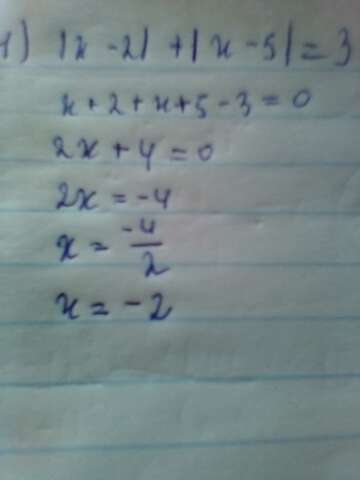 1) |x - 2| + |x - 5| = 3
x + 2 + x + 5 - 3 = 0
2x + 4 = 0
2x = -4
x = -4/2
x = -2